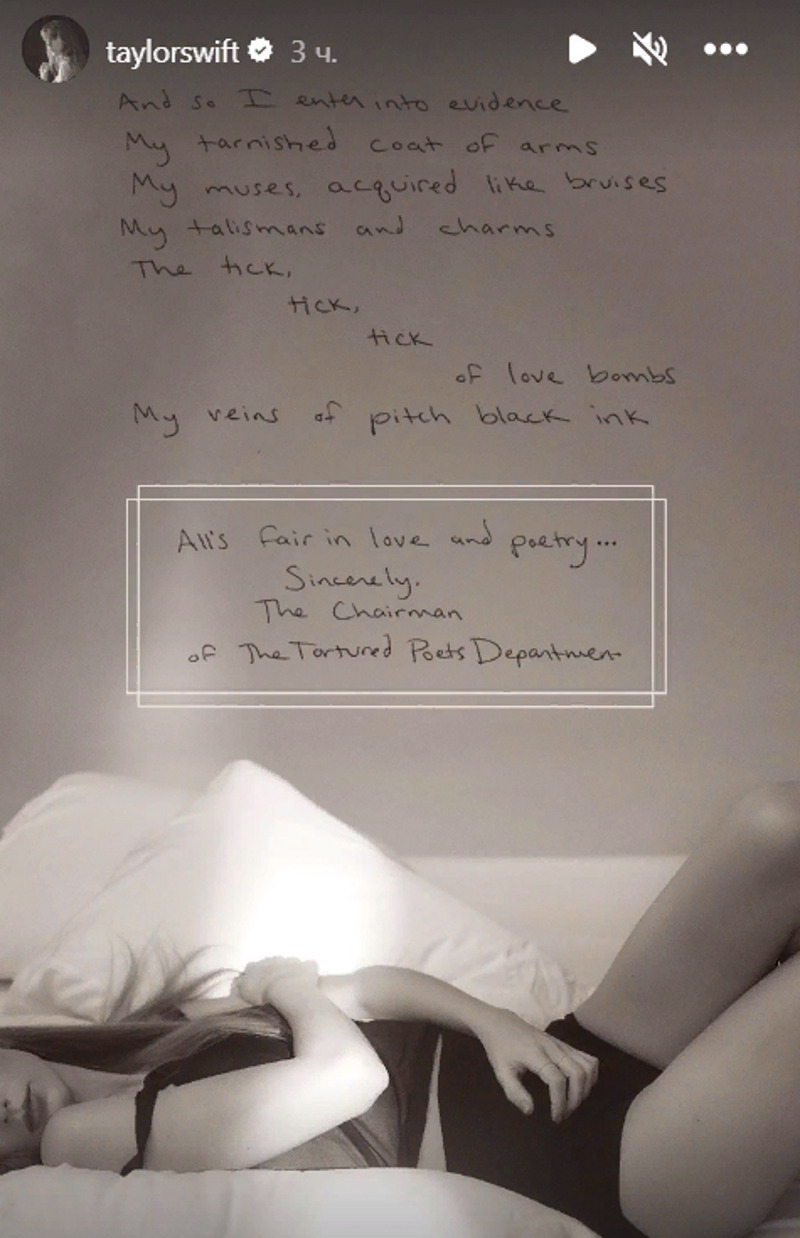 taylorswift 3 ч.
And so I enter into evidence
My tarnished coat of arms
My muses, acquired like bruises
My talismans and charms
The tick,
tick,
tick
of love bombs
My veins of pitch black ink
All's fair in love and poetry...
Sincerely,
The Chairman
of The Tortured Poets Department